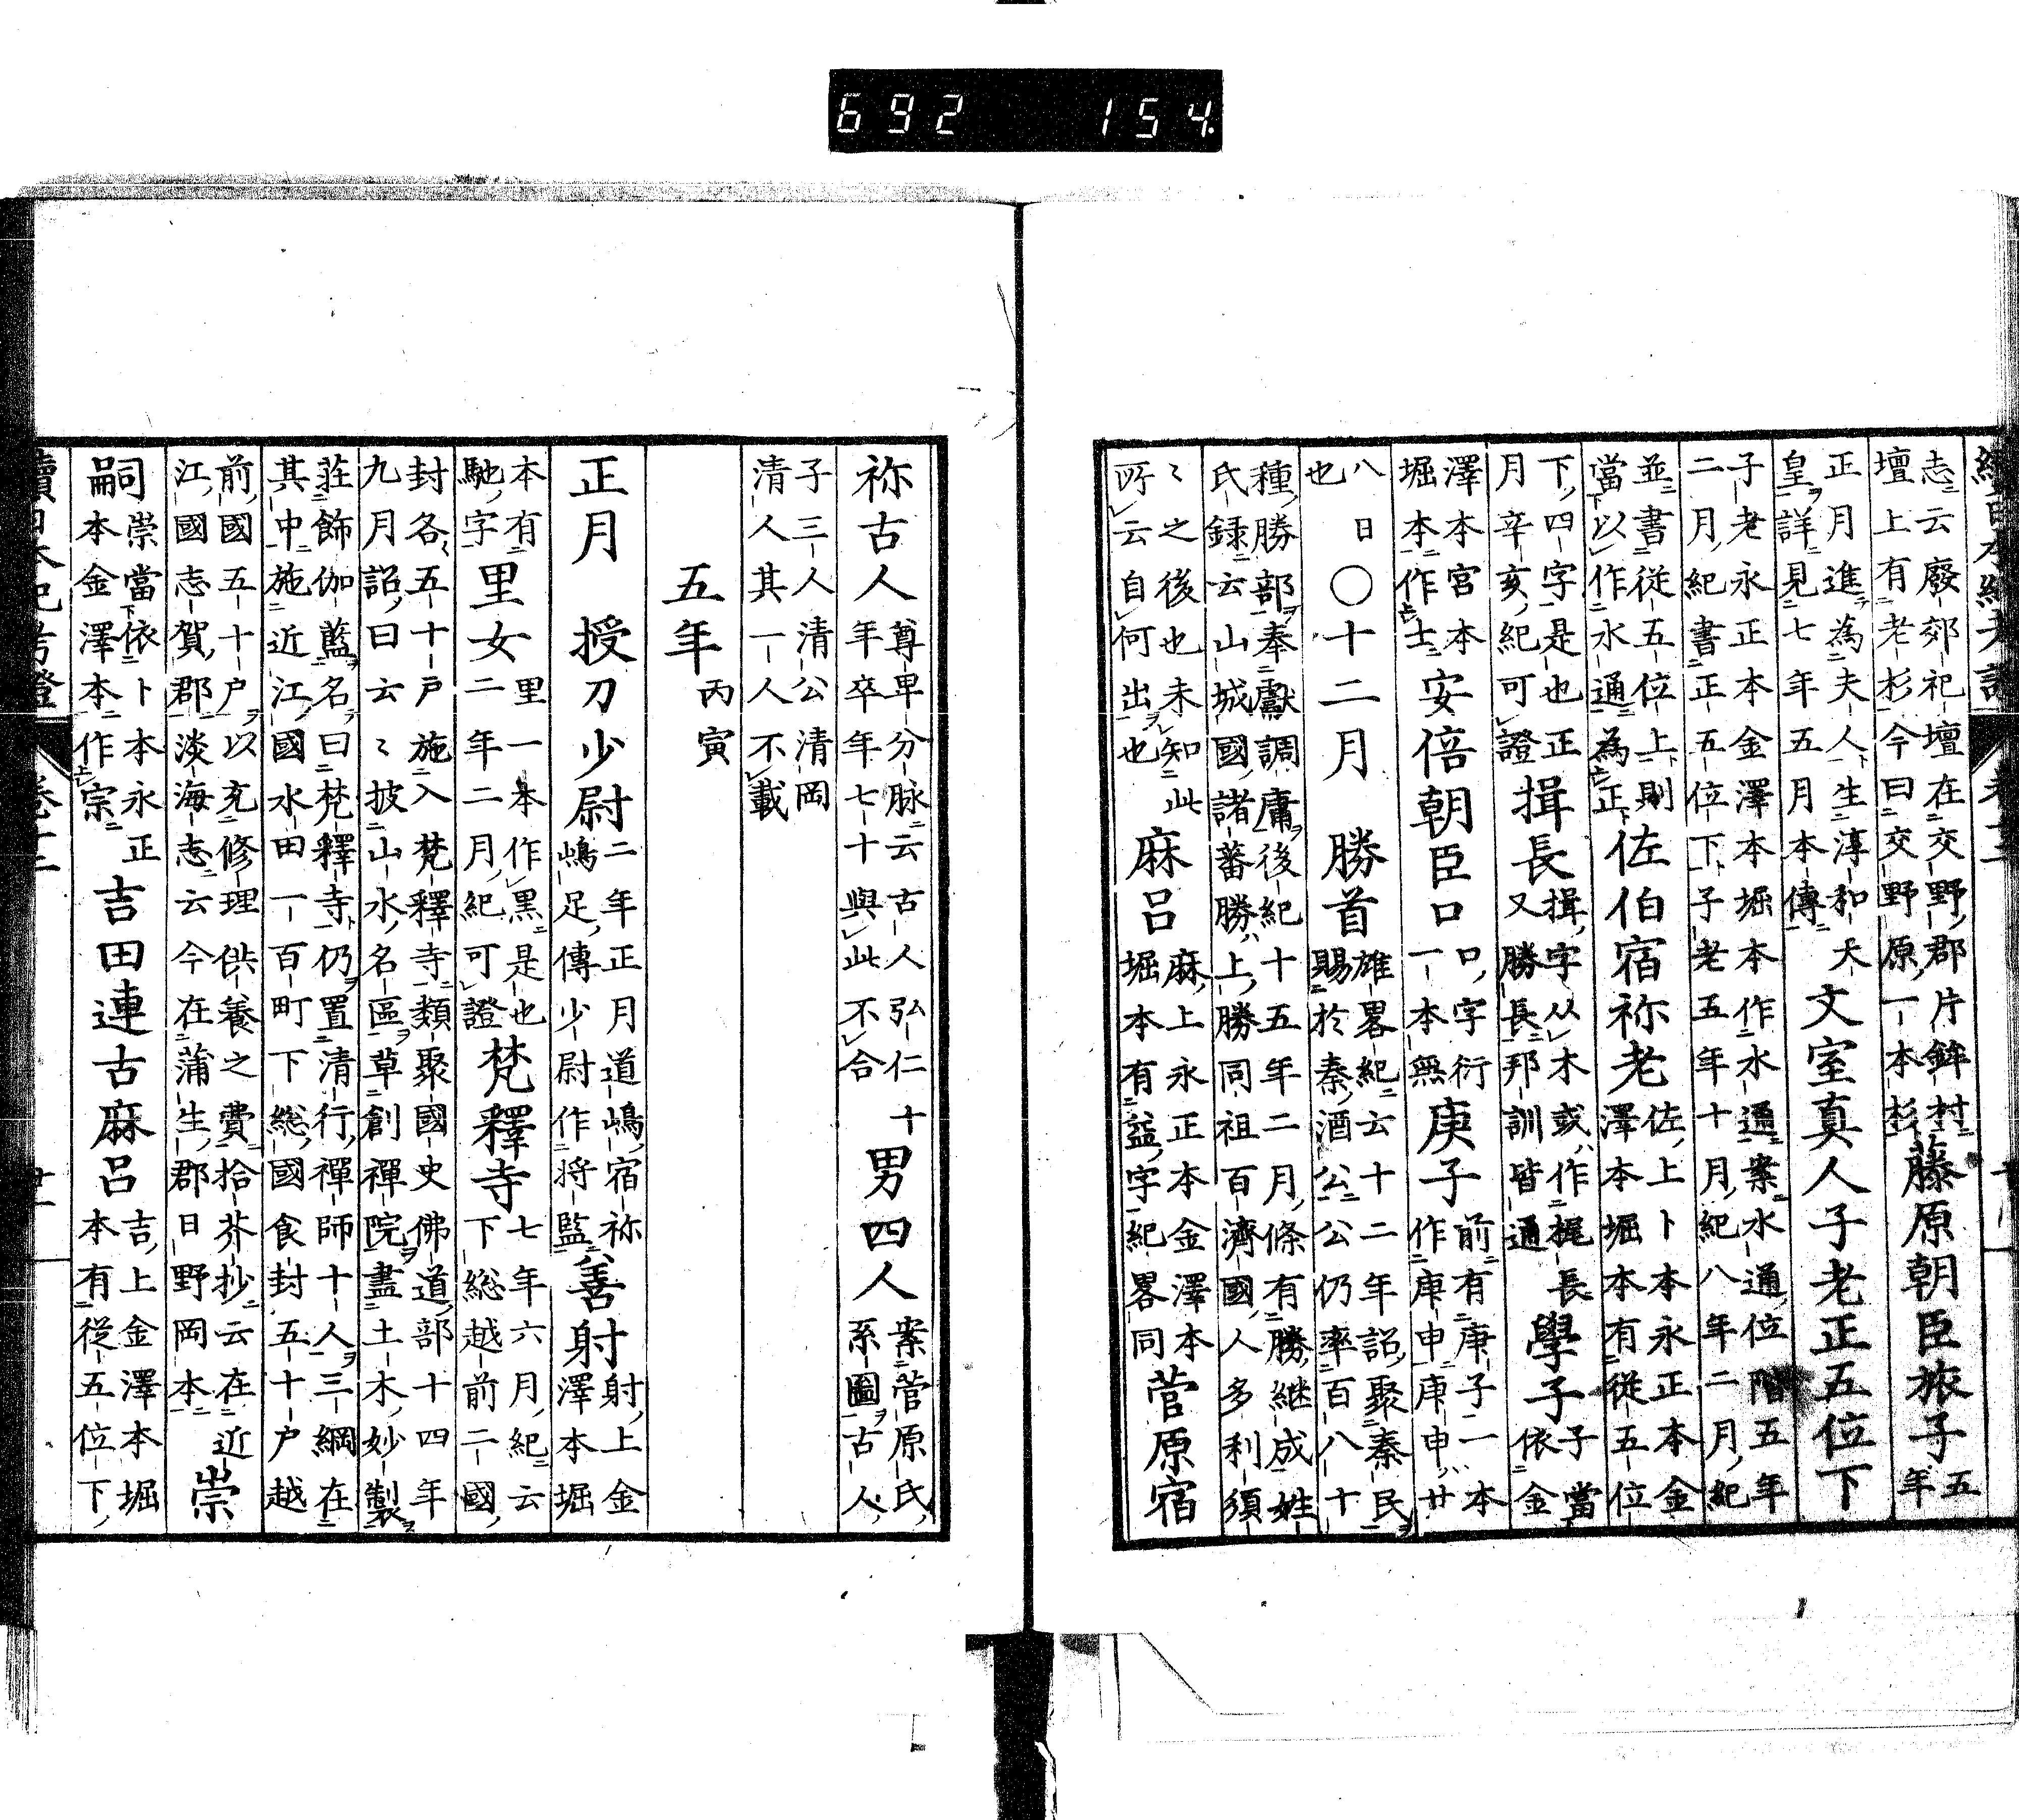 續日本紀考證
志云廢郊祀壇在交野郡片鉾村
壇上有老杉今曰交野原一本杉
藤原朝臣旅子
五
年
正月進為夫人生淳和天
皇詳見七年五月本傳
文室真人子老正五位下
子老永正本金澤本堀本作水通案水通位階五年
二月紀書正五位下子老五年十月紀八年二月紀
並書從五位上則
當以作水通為正
佐伯宿祢老
佐上卜本永正本金
澤本堀本有從五位
下四字是也正
月辛亥紀可證
揖長
揖字从木或作梶長
又勝長邦訓皆通
學子
子當
依金
澤本宮本
堀本作士
安倍朝臣口
口字衍
一本無
庚子
前有庚子二本
作庚申庚申廿
八日
也
〇十二月 勝首
雄畧紀云十二年詔聚秦民
賜於秦酒公公仍率百八十
種勝部奉獻調庸後紀十五年二月條有勝継成姓
氏録云山城國諸蕃勝上勝同祖百濟國人多利須
〻之後也未知此
所云自何出也
麻呂
麻上永正本金澤本
堀本有益字紀畧同
菅原宿
祢古人
尊卑分脉云古人弘仁十
年卒年七十與此不合
男四人
案菅原氏
系圖古人
子三人清公清岡
清人其一人不載
五年
丙寅
正月 授刀少尉
二年正月道嶋宿祢
嶋足傳少尉作將監
善射
射上金
澤本堀
本有
馳字
里女
里一本作黑是也
二年二月紀可證
梵釋寺
七年六月紀云
下総越前二國
封各五十戸施入梵釋寺類聚國史佛道部十四年
九月詔曰云〻披山水名區草創禪院盡土木妙製
莊飾伽藍名曰梵釋寺仍置清行禪師十人三綱在
其中施近江國水田一百町下総國食封五十户越
前國五十户以充修理供養之費拾芥抄云在近
江國志賀郡淡海志云今在蒲生郡日野岡本
崇
嗣
崇當依卜本永正
本金澤本作宗
吉田連古麻呂
吉上金澤本堀
本有從五位下
續日本紀考證 卷十二 廿一
692 154